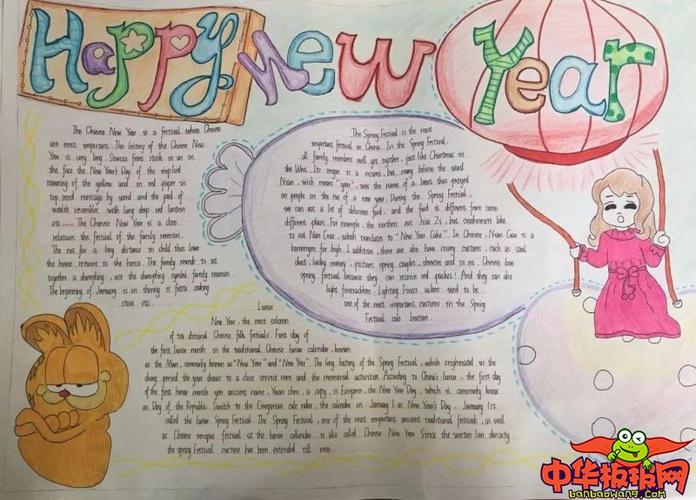 Happy New Year
The Chinese New Year is a festival where Chinese
are most important. The history of the Chinese New
Year is very long. stick in an on
the face the New Year's Day of the
meaning of the yellow and in red paper in
top send message by send and the god of
wealth with long deep red lantern
etc The Chinese New Year is a close
relatives the festival of the family reunion.
The rest for a long distance in child thus love
the honor returns to the home. The family reunite to set
together a dumpling, use the dumpling symbol family reunion.
The beginning of January is on thinning is fiesta cooking
store etc.
The Spring Festival is the most
important festival in China. In the Spring Festival,
all family members will get together, just like Christmas in
the West. Its origin is a ancient, but many believe the word
Nian, which means "year", was the name of a beast that preyed
on people on the eve of a new year. During the Spring Festival,
we can eat a lot of delicious food, and the food is different from some
different places. For example, the northers eat Jiao Zi, but southerners like
to eat Nian Gao, which translates to "New Year Cake". In Chinese, Nian Gao is a
homonym for high. I addition, there are also have many customs, such as send
shoes, lucky money, pictures spring couplet, and so on. Chinese love
spring festival because they can receive red packets! And they can also
light firecrackers! Lighting used to be
one of the most important customs in the Spring
Festival cele bration.
Lunar
New Year, the most solemn
of tra ditional Chinese folk festivals. First day of
the first lunar month in the traditional Chinese lunar calendar, known
as the Nian, commonly known as "New Year" and "New Year". The long history of the Spring Festival, which originated in the
shang period the year draws to a close service men and the memorial activities. According to China's lunar, the first day
of the first lunar month yan ancient name, Yuan chen, a copy, is the New Year Day, which is commonly know
as Day of the Republic. Switch to the Gregorian cale ndar, the calendar in January 1 as New Year's Day, January 1st
called the lunar Spring Festival. The Spring Festival, one of the most important ancient traditional festivals, as well
as Chinese unique festival at the lunar calendar. it is also called Chinese New Year. Since the western Han dynasty
the spring Festival custom has been extended till now.
中华板报网
banbaowang.com